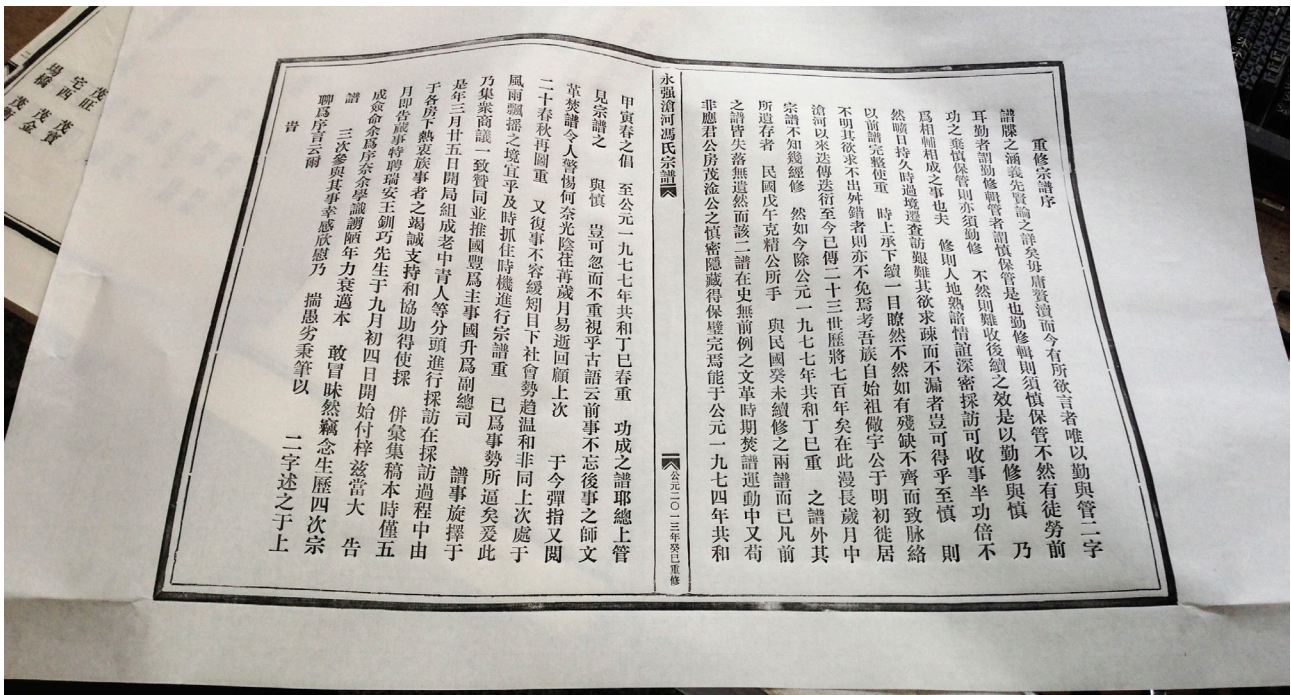 重修宗譜序
譜牒之涵義先賢論之詳矣毋庸贅瀆而今有所欲言者唯以勤與管二字
耳勤者謂勤修輯管者謂慎保管是也勤修輯則須慎保管不然有徒勞前
功之棄慎保管則亦須勤修 不然則難收後續之效是以勤修與慎 乃
爲相輔相成之事也夫 修則人地熟諳情誼深密採訪可收事半功倍不
然曠日持久時過境遷查訪艱難其欲求疎而不漏者豈可得乎至慎 則
以前譜完整使重 時上承下續一目瞭然不然如有殘缺不齊而致脉絡
不明其欲求不出舛錯者則亦不免焉考吾族自始祖儆宇公于明初徙居
滄河以來迭傳迭衍至今已傳二十三世歷將七百年矣在此漫長歲月中
宗譜不知幾經修 然如今除公元一九七七年共和丁巳重 之譜外其
所遺存者 民國戊午克精公所手 與民國癸未續修之兩譜而已凡前
之譜皆失落無遺然而該二譜在史無前例之文革時期焚譜運動中又苟
非應君公房茂淦公之慎密隱藏得保璧完焉能于公元一九七四年共和
永强滄河馮氏宗譜
公元二〇一三年癸巳重修
甲寅春之倡 至公元一九七七年共和丁巳春重 功成之譜耶總上管
見宗譜之 與慎 豈可忽而不重視乎古語云前事不忘後事之師文
革焚譜令人警惕何奈光陰荏苒歲月易逝回顧上次 于今彈指又閱
二十春秋再圖重 又復事不容緩矧目下社會勢趋温和非同上次處于
風雨飄播之境宜乎及時抓住時機進行宗譜重 已爲事勢所逼矣爰此
乃集衆商議一致贊同並推國豐爲主事國升爲副總司 譜事旋擇于
是年三月廿五日開局組成老中青人等分頭進行採訪在採訪過程中由
于各房下熱衷族事者之竭誠支持和協助得使採 併彙集稿本時僅五
月即告蕆事特聘瑞安王釧巧先生于九月初四日開始付梓兹當大 告
成僉命余爲序奈余學識謭陋年力衰邁本 敢冒昧然竊念生歷四次宗
譜 三次參與其事幸感欣慰乃 揣愚劣秉筆以 二字述之于上
聊爲序言云爾
旹
茂正 茂贊
宅西 茂金
塲橋